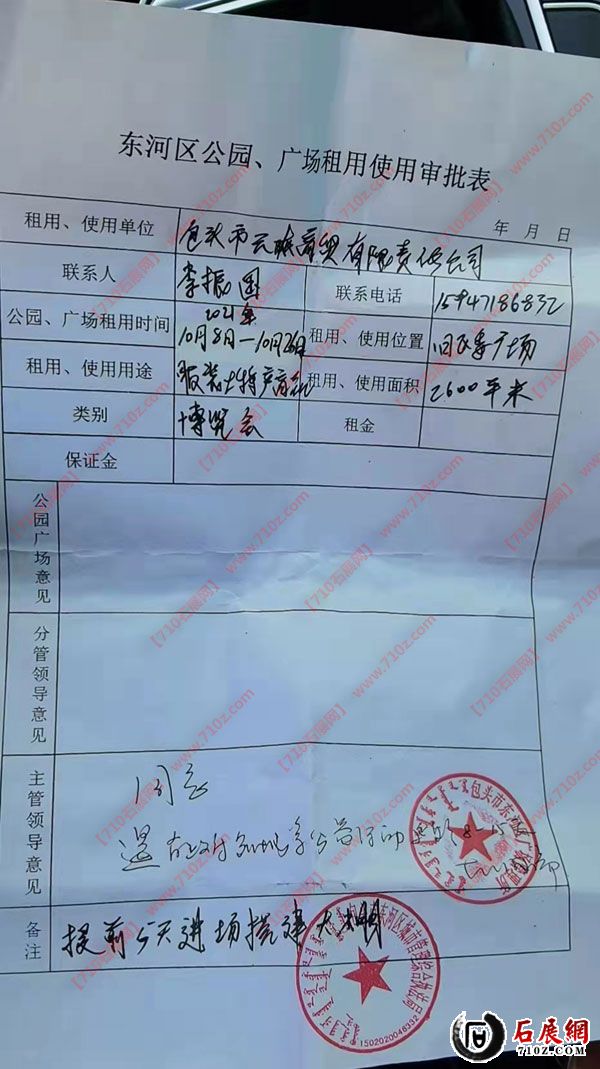 东河区公园、广场租用使用审批表
年 月 日
租用、使用单位 包头市云 商贸有限责任公司
联系人 李振国 联系电话 15947186832
公园、广场租用时间 2021年
10月8日—10月26日 租用、使用位置 回民 广场
租用、使用用途 服装土特产 租用、使用面积 2600平米
类别 博览会 租金
保证金
公园广场意见
分管领导意见
主管领导意见 同意
备注 提前5天进场搭建大棚
包头市东河区广场
东河区城市管理综合执法局
1502020048332
【710石展网】 www.710z.com
石展網
710Z.COM